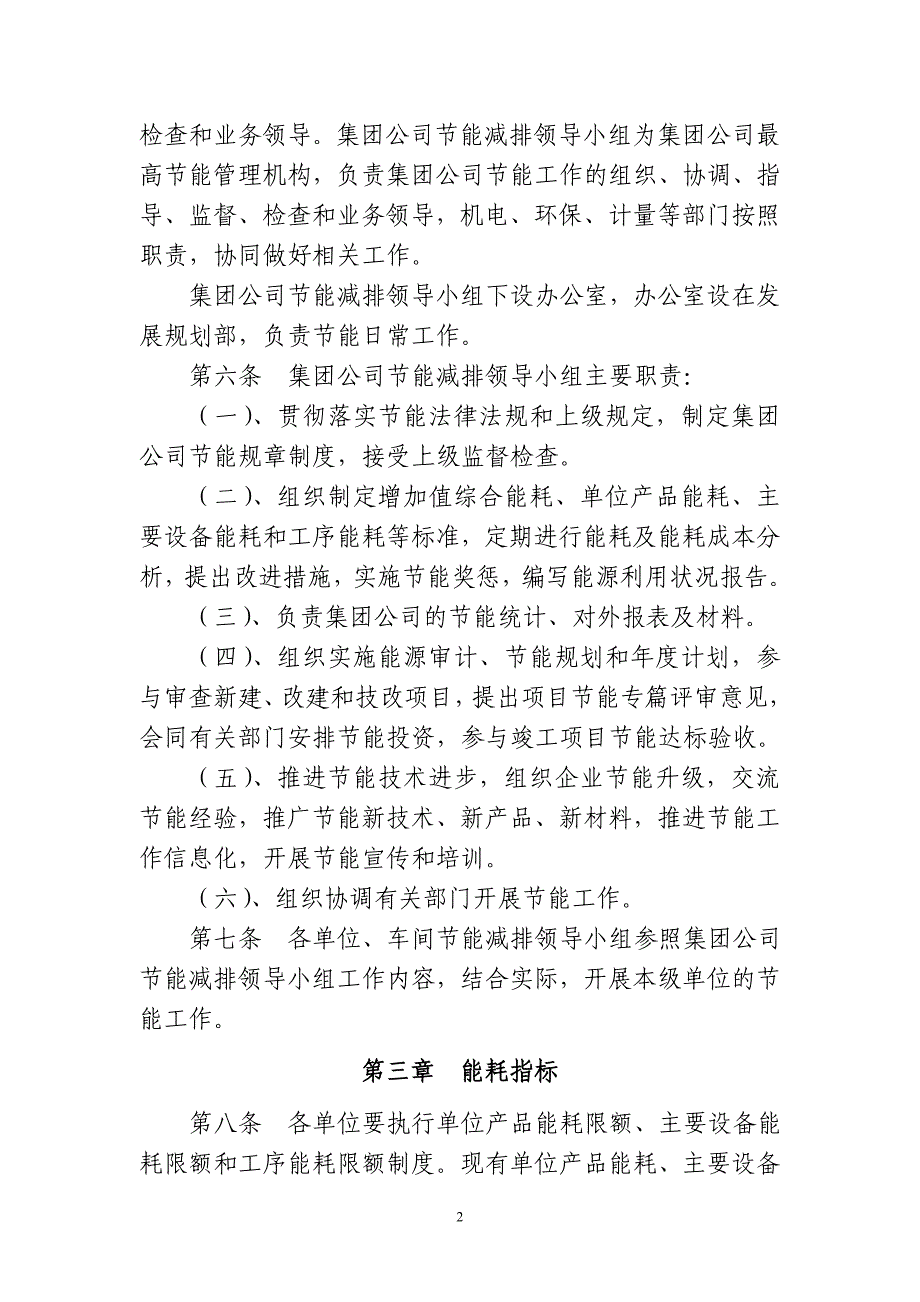 检查和业务领导。集团公司节能减排领导小组为集团公司最
高节能管理机构，负责集团公司节能工作的组织、协调、指
导、监督、检查和业务领导，机电、环保、计量等部门按照
职责，协同做好相关工作。
集团公司节能减排领导小组下设办公室，办公室设在发
展规划部，负责节能日常工作。
第六条　集团公司节能减排领导小组主要职责：
（一）、贯彻落实节能法律法规和上级规定，制定集团
公司节能规章制度，接受上级监督检查。
（二）、组织制定增加值综合能耗、单位产品能耗、主
要设备能耗和工序能耗等标准，定期进行能耗及能耗成本分
析，提出改进措施，实施节能奖惩，编写能源利用状况报告。
（三）、负责集团公司的节能统计、对外报表及材料。
（四）、组织实施能源审计、节能规划和年度计划，参
与审查新建、改建和技改项目，提出项目节能专篇评审意见，
会同有关部门安排节能投资，参与竣工项目节能达标验收。
（五）、推进节能技术进步，组织企业节能升级，交流
节能经验，推广节能新技术、新产品、新材料，推进节能工
作信息化，开展节能宣传和培训。
（六）、组织协调有关部门开展节能工作。
第七条　各单位、车间节能减排领导小组参照集团公司
节能减排领导小组工作内容，结合实际，开展本级单位的节
能工作。
第三章　能耗指标
第八条　各单位要执行单位产品能耗限额、主要设备能
耗限额和工序能耗限额制度。现有单位产品能耗、主要设备
2